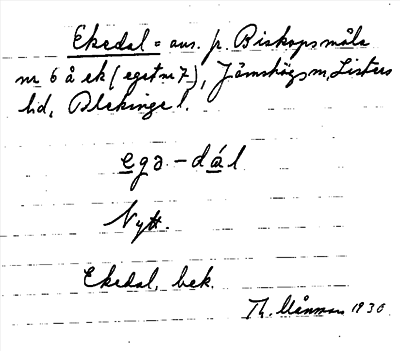 Ekedal = avs. p. Biskopsmåla
nr 6 å ek (eget nr 7), Jämshögs sn, Listers
hd, Blekinge l.
egə-dál
Nytt.
Ekedal, bek.
Th. Månsson 1930